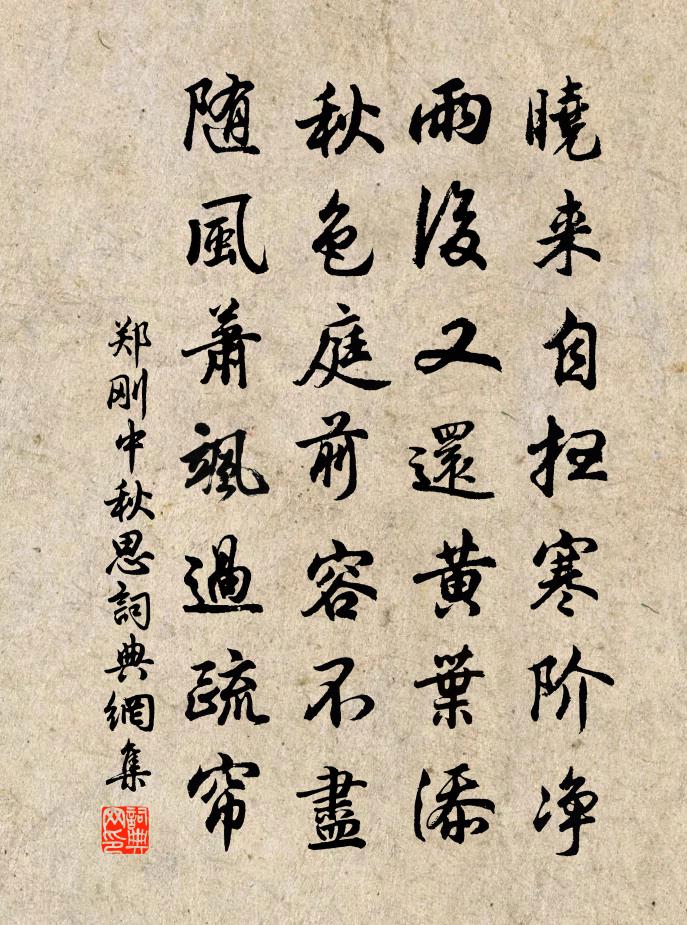 曉来自扫寒阶净
雨後又還黄葉添
秋色庭前容不盡
随風蕭颯過疏帘
郑刚中秋思詞典網集
詞典网印